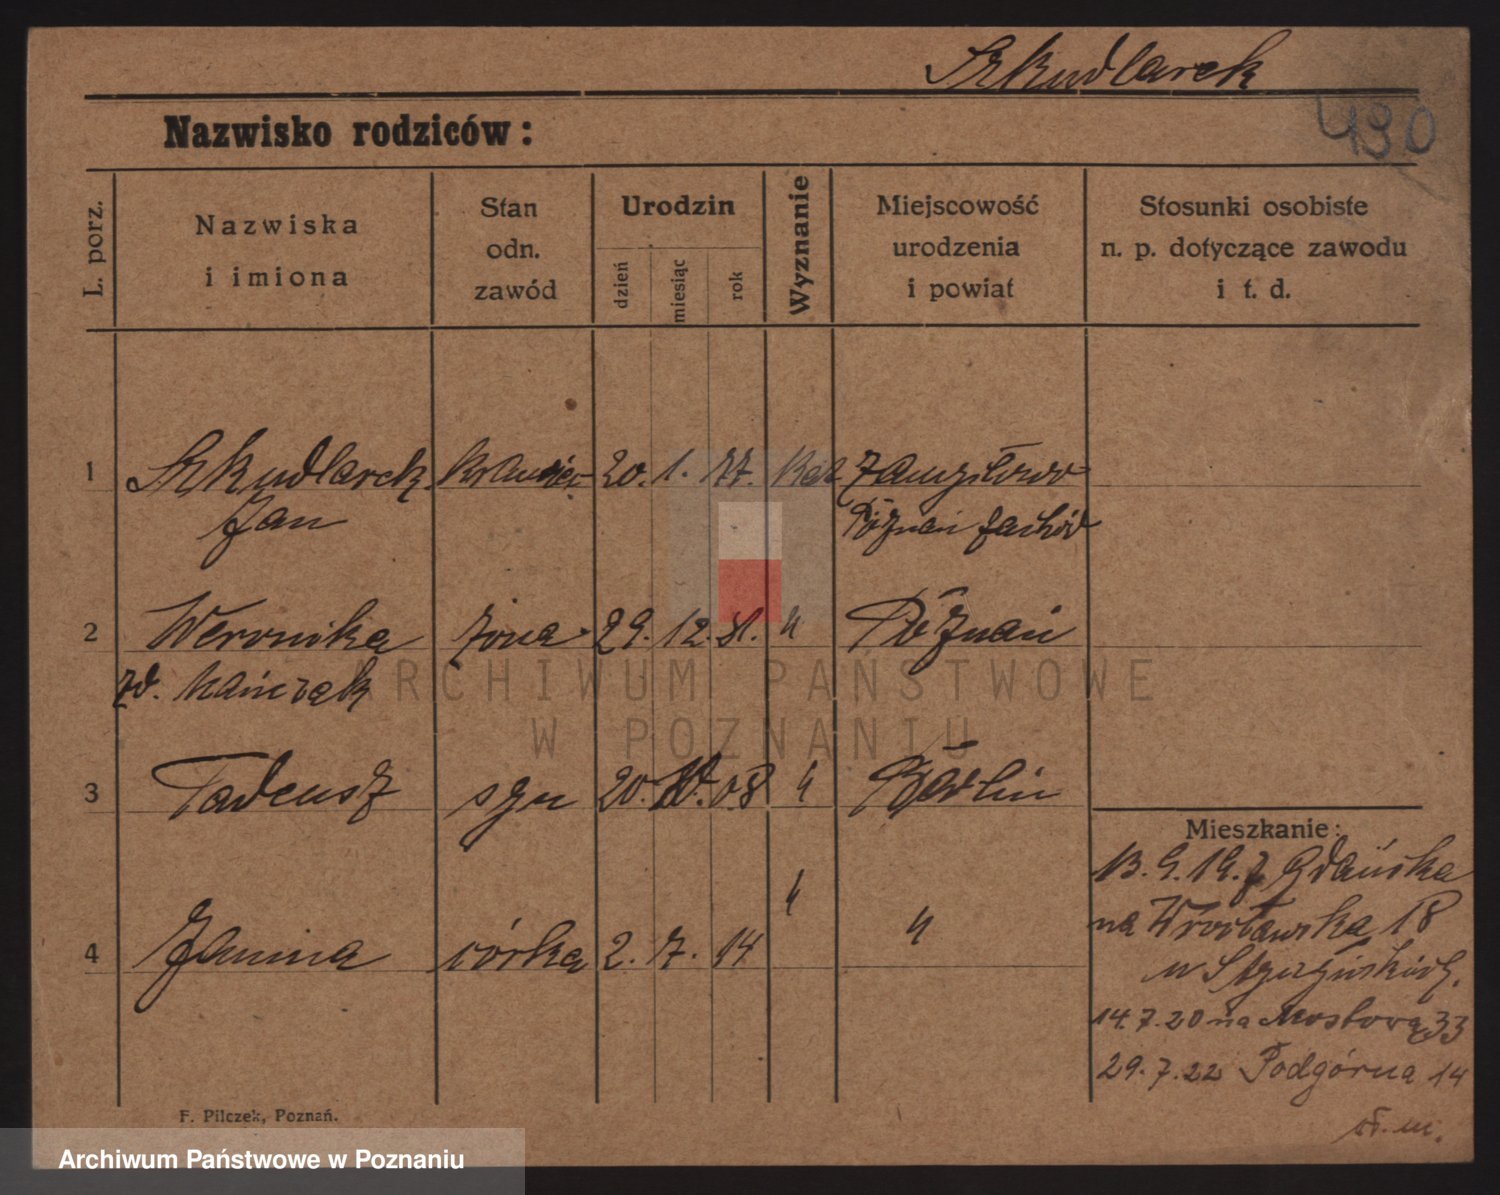 Szkudlarek
490
Nazwisko rodziców:
L. porz.
Nazwiska
i imiona
Stan
odn.
zawód
Urodzin
dzień
miesiąc
rok
Wyznanie
Miejscowość
urodzenia
i powiat
Stosunki osobiste
n. p. dotyczące zawodu
i t. d.
1 Szkudlarek krawiec 20. 1. 77. kat
Jan Poznań zachód
2 Weronika żona 29. 12. 81. " Poznań
zd.
ARCHIWUM PAŃSTWOWE
W POZNANIU
3 Tadeusz syn 20. 08 " Berlin
Mieszkanie:
13. 9. 19. z Gdańska
na Wrocławska 18
u
4 Janina córka 2. 7. 14 " "
14.7.20 na Mostową 33
29.7.22 Podgórna 14
F. Pilczek, Poznań.
Archiwum Państwowe w Poznaniu